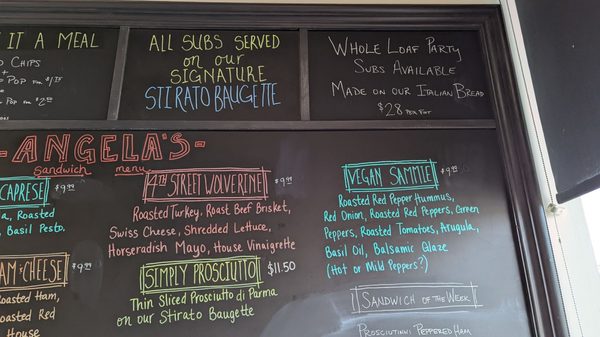 IT A MEAL
CHIPS
+
POP FOR $1.75
+
POP $2.50
ALL SUBS SERVED
on our
SIGNATURE
STIRATO BAUGETTE
WHOLE LOAF PARTY
SUBS AVAILABLE
MADE ON OUR ITALIAN BREAD
$28 PER FOOT
-ANGELA'S-
sandwich menu
CAPRESE $9.99
Roasted
Basil Pesto.
& CHEESE $9.99
Roasted Ham,
Roasted Red
House
4TH STREET WOLVERINE $9.99
Roasted Turkey, Roast Beef Brisket,
Swiss Cheese, Shredded Lettuce,
Horseradish Mayo, House Vinaigrette
SIMPLY PROSCIUTTO $11.50
Thin Sliced Prosciutto di Parma
on our Stirato Baugette
VEGAN SAMMIE $9.99
Roasted Red Pepper Hummus,
Red Onion, Roasted Red Peppers, Green
Peppers, Roasted Tomatoes, Arugula,
Basil Oil, Balsamic Glaze
(Hot or Mild Peppers?)
SANDWICH OF THE WEEK
PROSCIUTINNI PEPPERED HAM